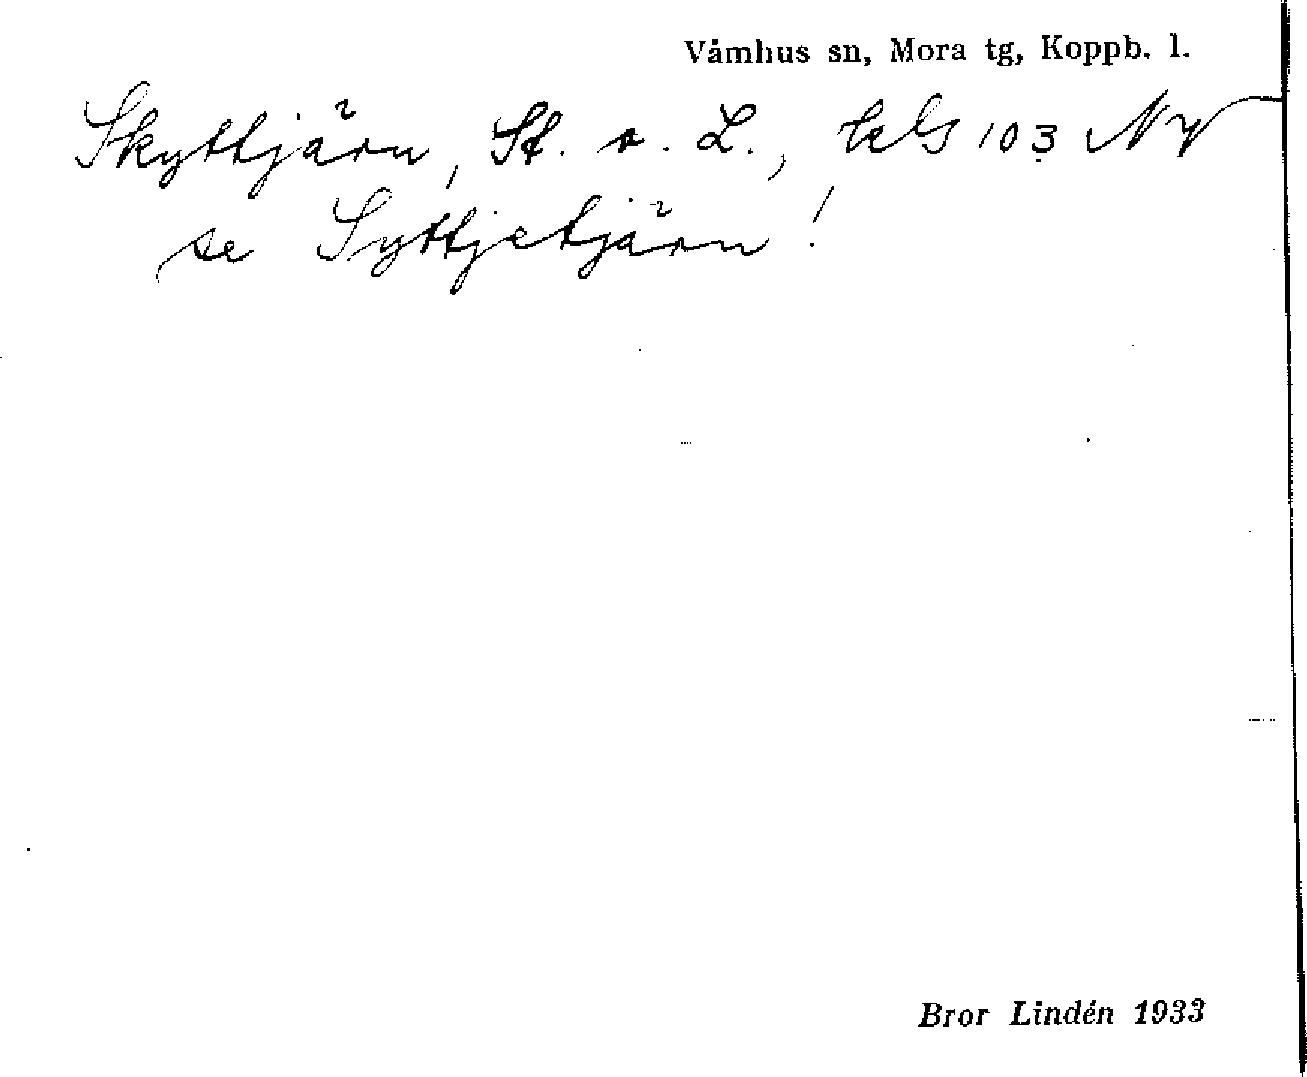 Våmhus sn, Mora tg, Koppb. l.
Skyttjärn, St. o. L., kbl 103 NV
se Syttjetjärn!
Bror Lindén 1933